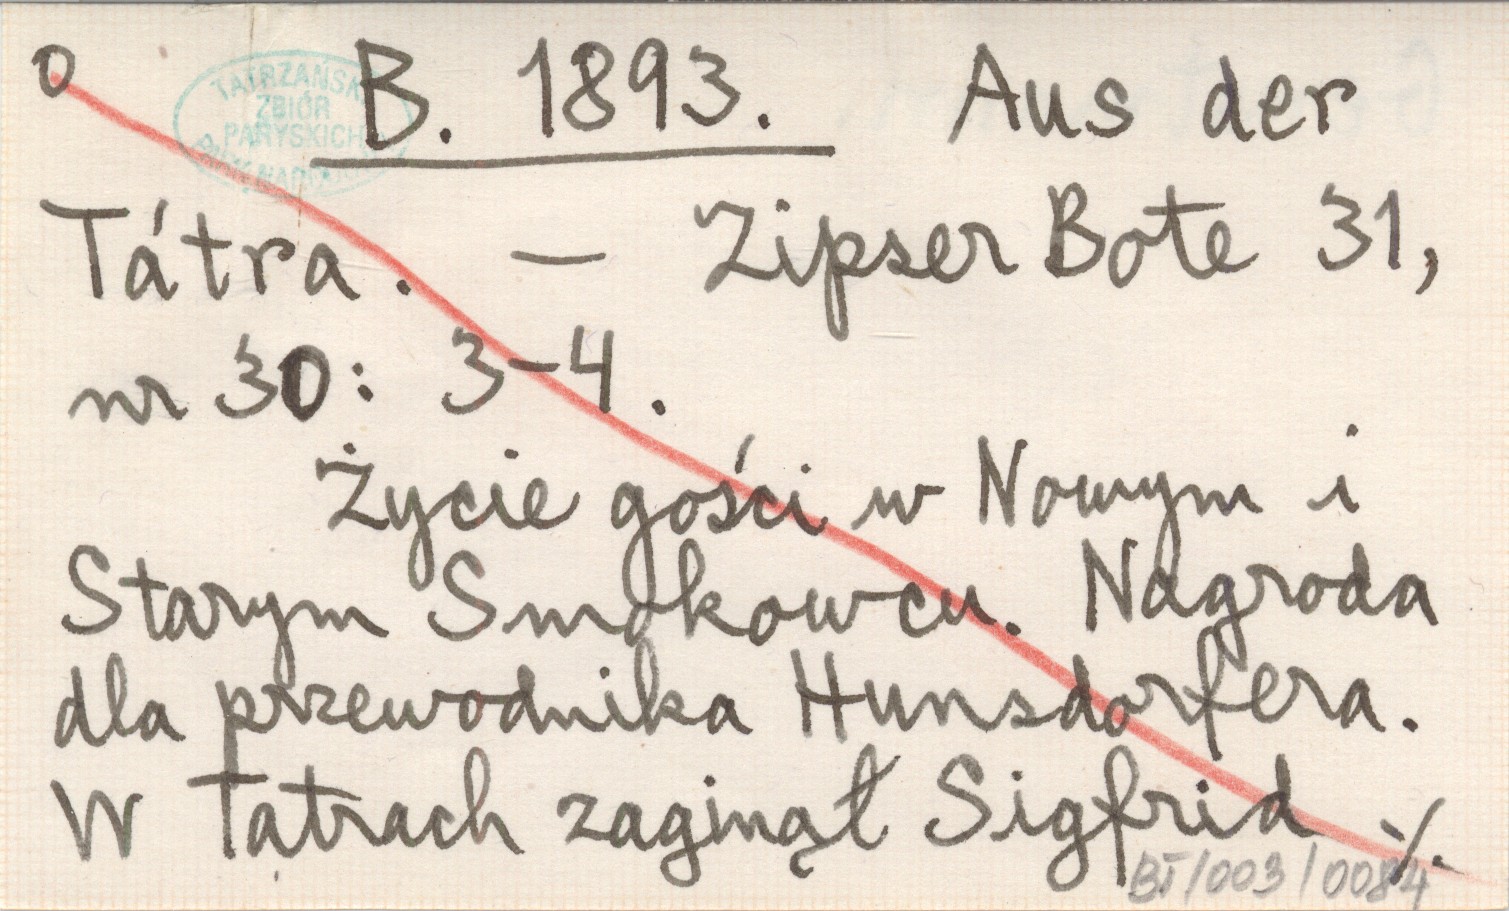 O B. 1893. Aus der
TATRZAŃSKI
ZBIÓR
PARYSKICH
Tátra. — Zipser Bote 31,
nr 30: 3-4.
Życie gości w Nowym i
Starym Smokowcu. Nagroda
dla przewodnika Hunsdorfera.
W Tatrach zaginął Sigfrid ./.
BI/003/0084